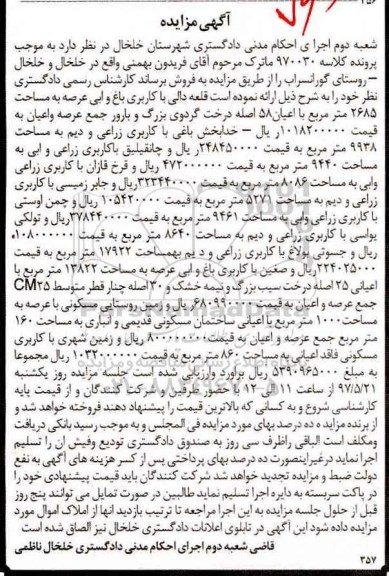 ۳۵۶
آگهی مزایده
شعبه دوم اجرا ی احکام مدنی دادگستری شهرستان خلخال در نظر دارد به موجب
پرونده کلاسه ۹۷۰۰۳۰ ماترک مرحوم آقای فریدون بهمنی واقع در خلخال و خلخال
– روستای گورانسراب را از طریق مزایده به فروش برساند کارشناس رسمی دادگستری
نظر خود را به شرح ذیل ارائه نموده است قلعه دالی با کاربری باغ و ابی عرصه به مساحت
۲۶۸۵ متر مربع با اعیان۵۸ اصله درخت گردوی بزرگ و بارور جمع عرصه واعیان به
قیمت ۱۰۱۸۲۰۰۰۰۰ ریال – خدابخش باغی با کاربری زراعی و دیم به مساحت
۹۹۳۸ متر مربع به قیمت ۲۴۸۴۵۰۰۰۰ ریال و چانقیلیق باکاربری زراعی و ابی به
مساحت ۹۴۴۰ متر مربع به قیمت ۴۷۲۰۰۰۰۰۰ ریال و قرخ قازان با کاربری زراعی
وابی به مساحت ۸۰۸۶ متر مربع به قیمت ۳۲۳۴۴۰۰۰۰ریال و جابر زمیسی با کاربری
زراعی و دیم به مساحت ۵۲۷۱ متر مربع به قیمت ۱۰۵۴۲۰۰۰۰ ریال و چمن اوستی
با کاربری زراعی وابی به مساحت ۹۴۶۱ متر مربع به قیمت ۳۷۸۴۴۰۰۰۰ریال و تولکی
یواسی با کاربری زراعی و دیم به مساحت ۸۶۴۰ متر مربع به قیمت ۱۰۸۰۰۰۰۰۰
ریال و جسوتی بولاغ با کاربری زراعی و د یم بهمساحت ۱۷۹۲۲ متر مربع به قیمت
۲۲۴۰۲۵۰۰۰ریال و صغین با کاربری باغ و ابی عرصه به مساحت ۱۳۸۲۲ متر مربع با
اعیانی ۲۵ اصله درخت سیب بزرگ و نیمه خشک و ۳۰ اصله چنار قطر متوسط CM۲۵
جمع عرصه و اعیان به قیمت ۶۸۰۹۹۰۰۰۰ ریال و زمین روستایی مسکونی با عرصه به
مساحت ۱۰۰۰ متر مربع با اعیانی ساختمان مسکونی قدیمی و انباری به مساحت ۱۶۰
متر مربع جمع عرصه و اعیان به قیمت ۸۰۰۰۰۰۰۰۰ ریال و زمین شهری با کاربری
مسکونی فاقد اعیانی به مساحت ۸۶۰ متر مربع به قیمت ۱۰۳۲۰۰۰۰۰۰ ریال مجموعا
به مبلغ ۵۳۹۰۹۶۵۰۰۰ ریال براورد وارزیابی شده است جلسه مزایده روز یکشنبه
۹۷/۵/۲۱ از ساعت ۱۱ الی ۱۲ با حضور طرفین و شرکت کنندگان و از قیمت پایه
کارشناسی شروع و به کسانی که بالاترین قیمت را پیشنهاد دهند فروخته خواهد شد و
از برنده مزایده ه ده درصد بهای مورد مزایده فی المجلس و به موجب رسید بانکی دریافت
ومکلف است الباقی راظرف سی روز به صندوق دادگستری تودیع وفیش ان را تسلیم
اجرا نماید درغیراینصورت ده درصد بهای پرداختی پس از کسر هزینه های آگهی به نفع
دولت ضبط و مزایده تجدید خواهد شد شرکت کنندگان باید قیمت پیشنهادی خود را
در پاکت سربسته به دایره اجرا تسلیم نماید طالبین در صورت تمایل می توانند پنج روز
قبل از حلول جلسه مزایده به این اجرا مراجعه تا ترتیب بازدید انها از املاک اموال مورد
مزایده داده شود این آگهی در تابلوی اعلانات دادگستری خلخال نیز الصاق شده است
قاضی شعبه دوم اجرای احکام مدنی دادگستری خلخال ناظمی
۳۵۷